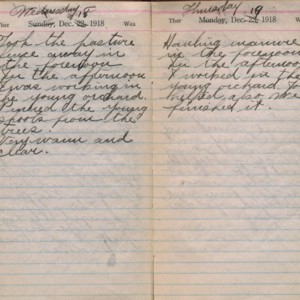 Wednesday 18
Ther Sunday, Dec. 28, 1918 Wea
Took the pasture
fence away in
the forenoon
In the afternoon
I was working in
the young orchard.
the young
spots from the
trees.
Very warm and
clear.
Thursday 19
Ther Monday, Dec. 1918
Hauling manure
in the forenoon
In the afternoon
I worked in the
young orchard.
helped also. We
finished it.